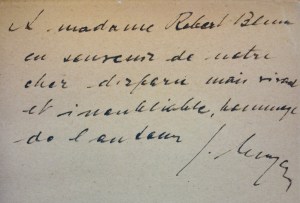 A madame Robert Blum
en souvenir de notre
cher disparu mais vivant
et inoubliable, hommage
de l'auteur
J.